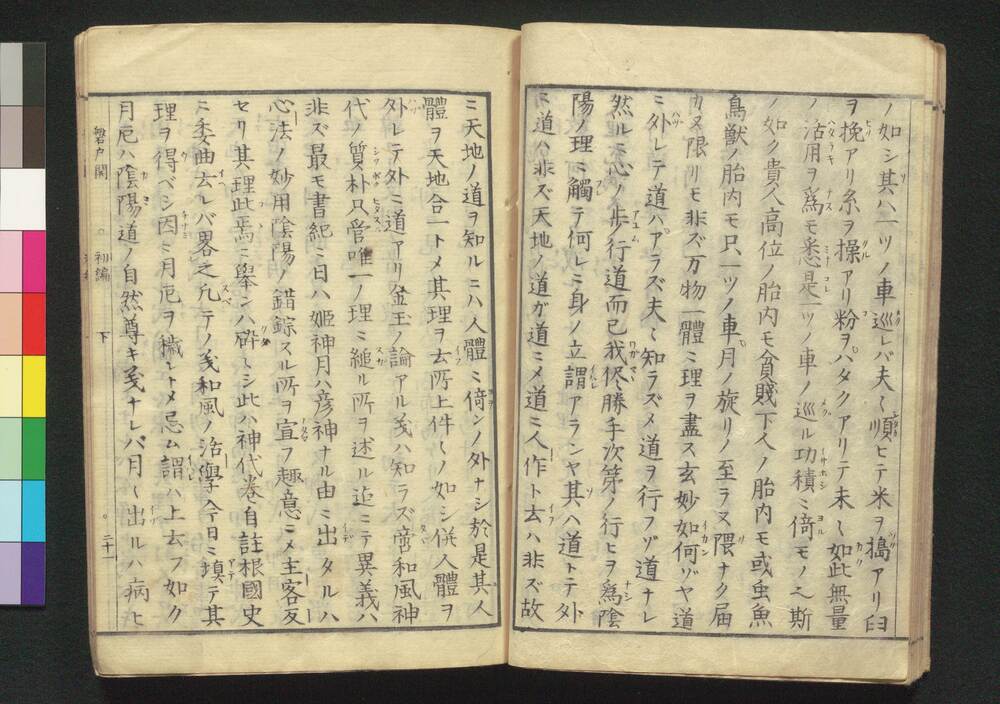 ノ如シ其ハ一ツノ車巡レバ夫々順ヒテ米ヲ搗アリ臼
ヲ挽アリ糸ヲ操アリ粉ヲハタクアリテ未々如此無量
ノ活用ヲ爲モ悉是一ツノ車ノ巡ル功積ミ倚モノ之斯
ノ如ク貴人高位ノ胎内モ貧賤下人ノ胎内モ或虫魚
鳥獸ノ胎内モ只一ツノ車月ノ旋リノ至ラヌ隈ナク届
カヌ限リモ非ズ万物一體ミ理ヲ盡ス玄妙如何ゾヤ道
ミ外レテ道ハアラズ夫ヽ知ラズメ道ヲ行フゾ道ナレ
然ルミ心ノ歩行道而已我侭勝手次第ノ行ヒヲ爲陰
陽ノ理ミ觸テ何レミ身ノ立謂アランヤ其ハ道トテ外
ミ道ハ非ズ天地ノ道ガ道ミメ道ミ人作ト云ハ非ズ故
ミ天地ノ道ヲ知ルニハ人體ミ倚ンノ外ナシ於是其人
體ヲ天地合一トメ其理ヲ云所上件々ノ如シ併人體ヲ
外レテ外ミ道アリノ金玉ノ論アル義ハ知ラズ啻和風神
代ノ質朴只管唯一ノ理ミ縋ル所ヲ述ル迄ミテ異義ハ
非ズ最モ書紀ミ日ハ姫神月ハ彦神ナル由ミ出タルハ
心法ノ妙用陰陽ノ錯綜スル所ヲ宣フ趣意ミメ主客反
セリ其理此焉ミ擧ンハ碎々シ此ハ神代巻自註根國史
ミ委曲云レバ畧之凡テノ義和風ノ活學今日ミ填テ其
理ヲ得ベシ因ミ月厄ヲ穢レトメ忌ム謂ハ上云フ如ク
月厄ハ陰陽道ノ自然尊キ義ナレバ月々出ルハ病ヒ
磐戸開 ○ 初編 下 ○ 二十